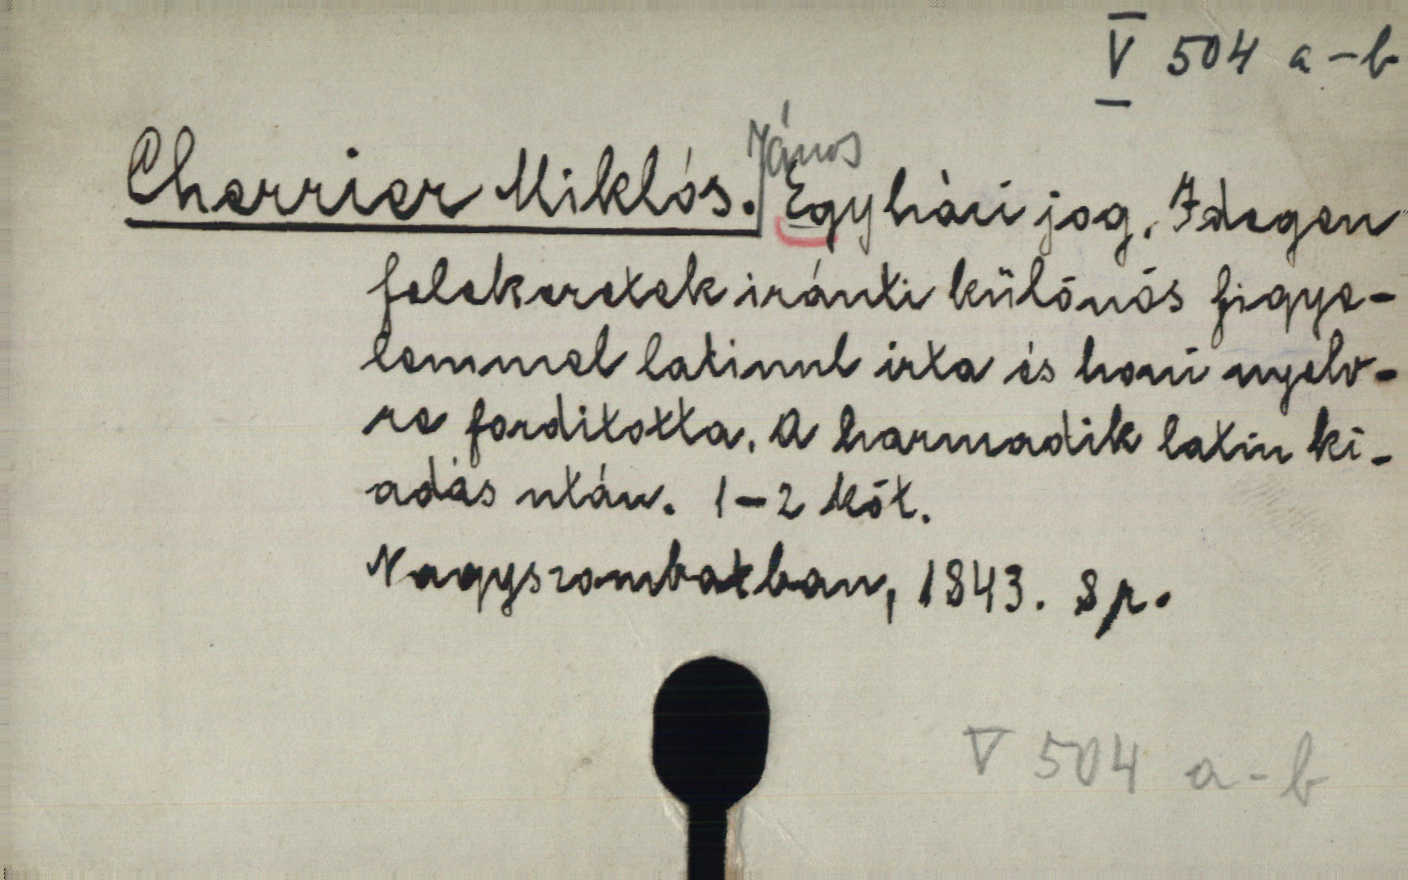 V 504 a-b
János
Cherrier Miklós. Egyházi jog. Idegen
felekezetek iránti különös figye-
lemmel latinul irta és honi nyelv-
re forditotta. A harmadik latin ki-
adás után. 1-2 köt.
Nagyszombatban, 1843. 8 r.
V 504 a-b